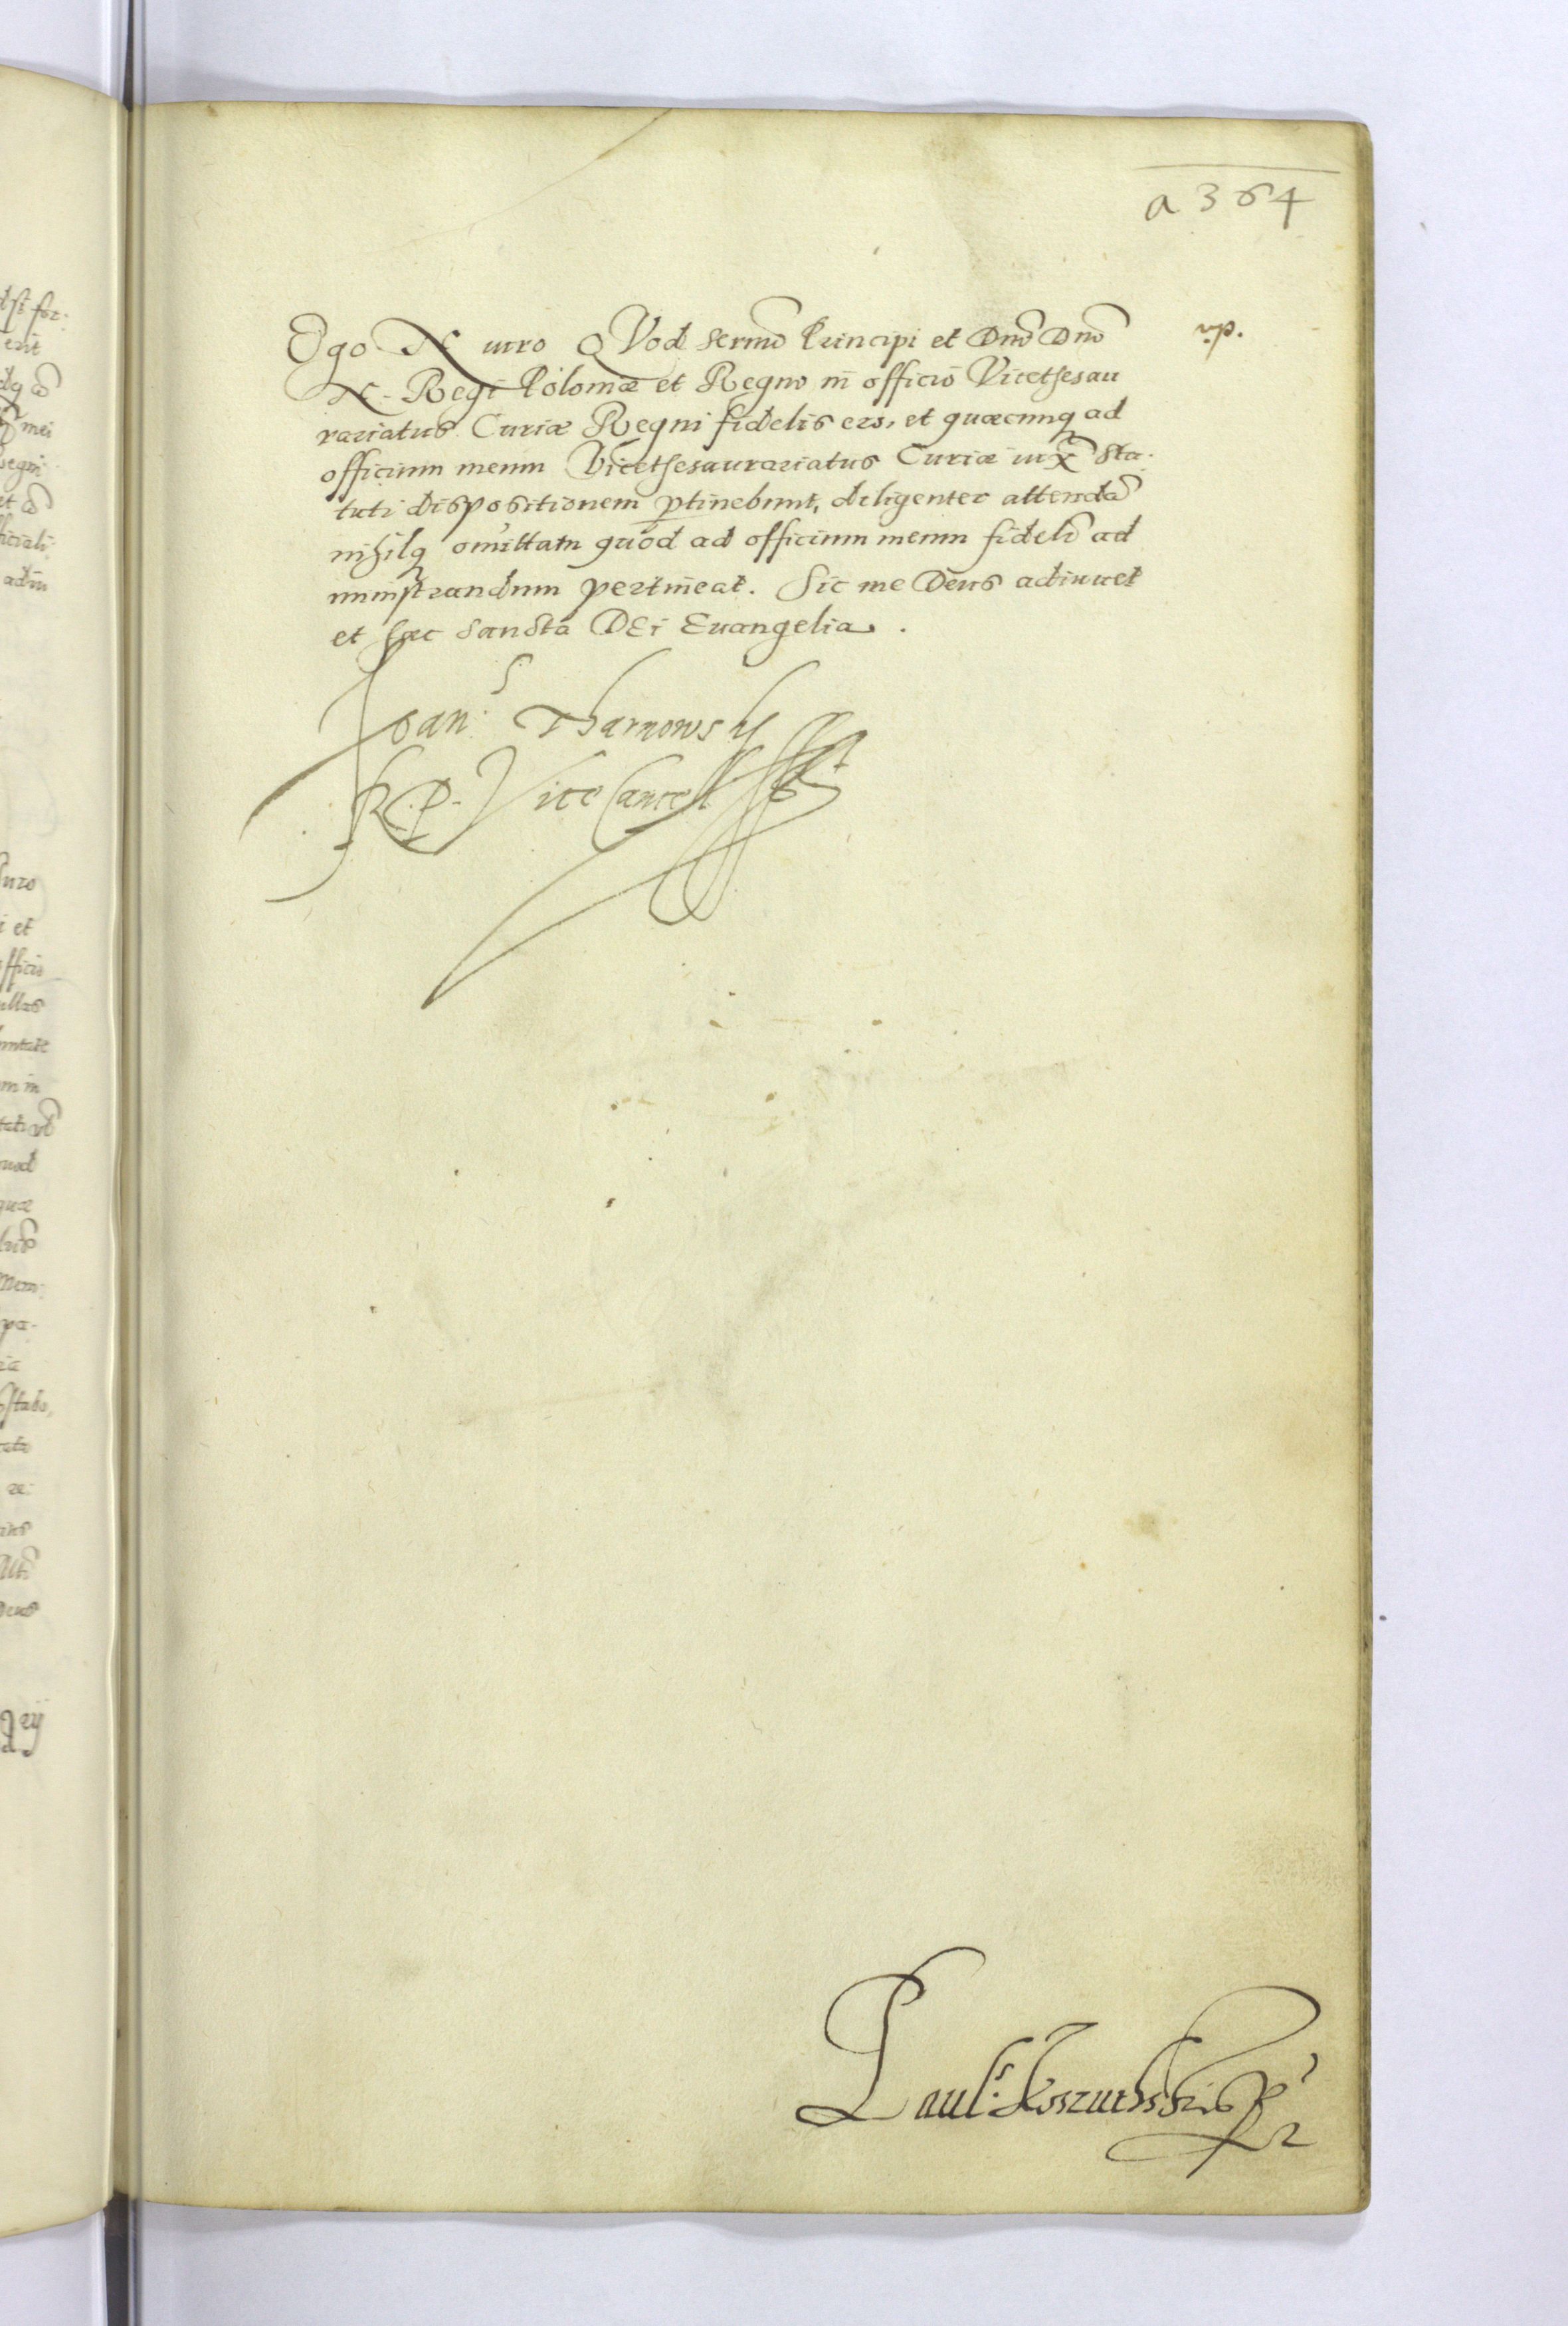 a 364
Ego N iuro QVod sermo Principi et Dno Dno
N. Regi Poloniæ et Regno in officio Vicethesau
rariatus Curiæ Regni fidelis ero, et quæcunq ad
officium meum Vicethesaurariatus Curiæ iux Sta-
tuti dispositionem ptinebunt, diligenter attenda
nihilq omittam quod ad officium meum fideli ad
ministrandum pertineat. Sic me Deus adiuuet
et hæc sancta DEi Euangelia.
Joan s Tharnowsky
R. P. Vice Cancell
Paul s